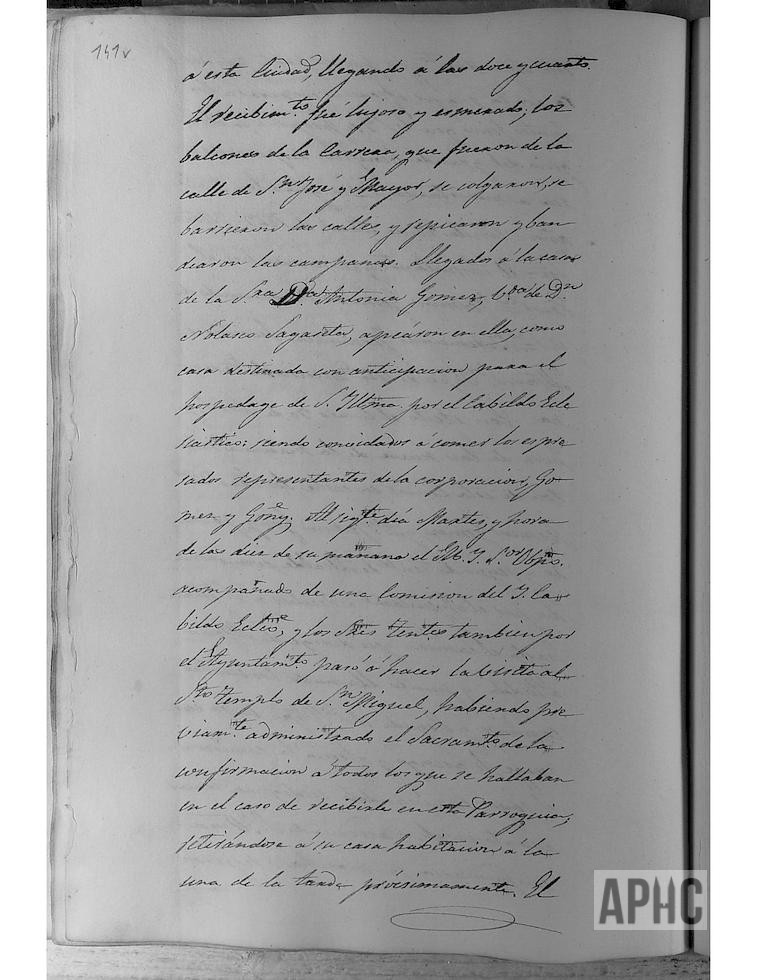 141v
á esta Ciudad, llegando á las doce y cuarto.
El recibim.to fué lujoso y esmerado; los
balcones de la Carrera, que fueron de la
calle de S.n José y Mayor, se colgaron, se
barrieron las calles, y repicaron y ban
dearon las campanas. Llegados á la casa
de la S.ra D.a Antonia Gomez, V.da de D.n
Nolasco Sagasta, apeáron en ella, como
casa destinada con anticipacion para el
hospedage de S. Ittma. por el Cabildo Ecle
siastico; siendo convidados á comer los espre
sados representantes de la corporacion, Go
mez y Gonz. Al sig.te dia Martes, y hora
de las diez de su mañana el M. Y. S.or Obpo.
acompañado de una Comision del Y. Ca
bildo Ecl.co, y los Stes. Tent.es tambien por
el Ayuntam.to pasó á hacer la visita al
S.to templo de S.n Miguel, habiendo pre
viam.te administrado el Sacram.to de la
confirmacion á todos los que se hallaban
en el caso de recibirle en esta Parroquia,
retirándose á su casa habitacion á la
una de la tarde prócsimamente. El
APHC